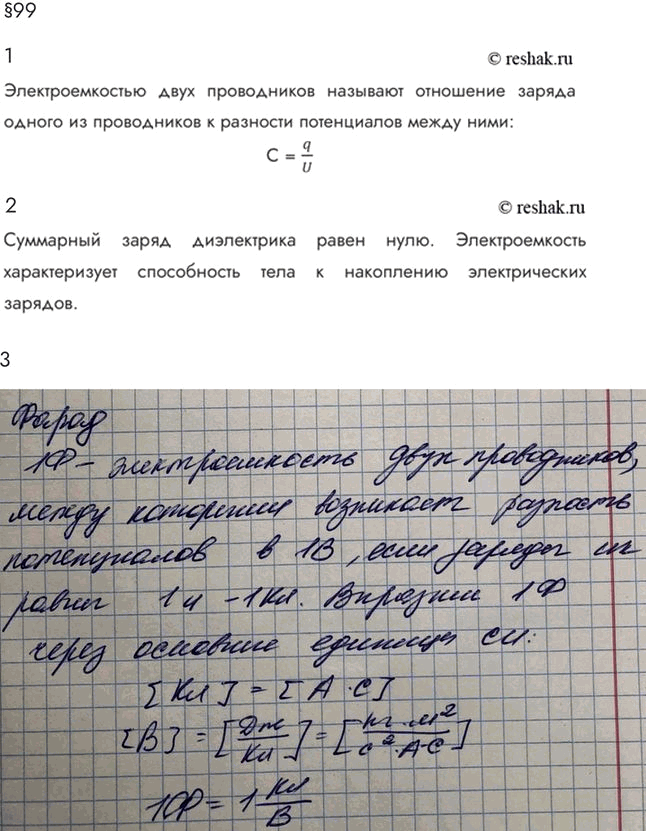 §99
1
© reshak.ru
Электроемкостью двух проводников называют отношение заряда
одного из проводников к разности потенциалов между ними:
C = q/U
2
© reshak.ru
Суммарный заряд диэлектрика равен нулю. Электроемкость
характеризует способность тела к накоплению электрических
зарядов.
3
Фарад
1Ф – электроемкость двух проводников,
между которыми возникает разность
потенциалов в 1В, если заряды их
равны 1 и -1 Кл. Выразим 1Ф
через основные единицы СИ:
[Кл] = [А·С]
[В] = [Дж/Кл] = [кг·м²/с²·А·С]
1Ф = 1 Кл/В